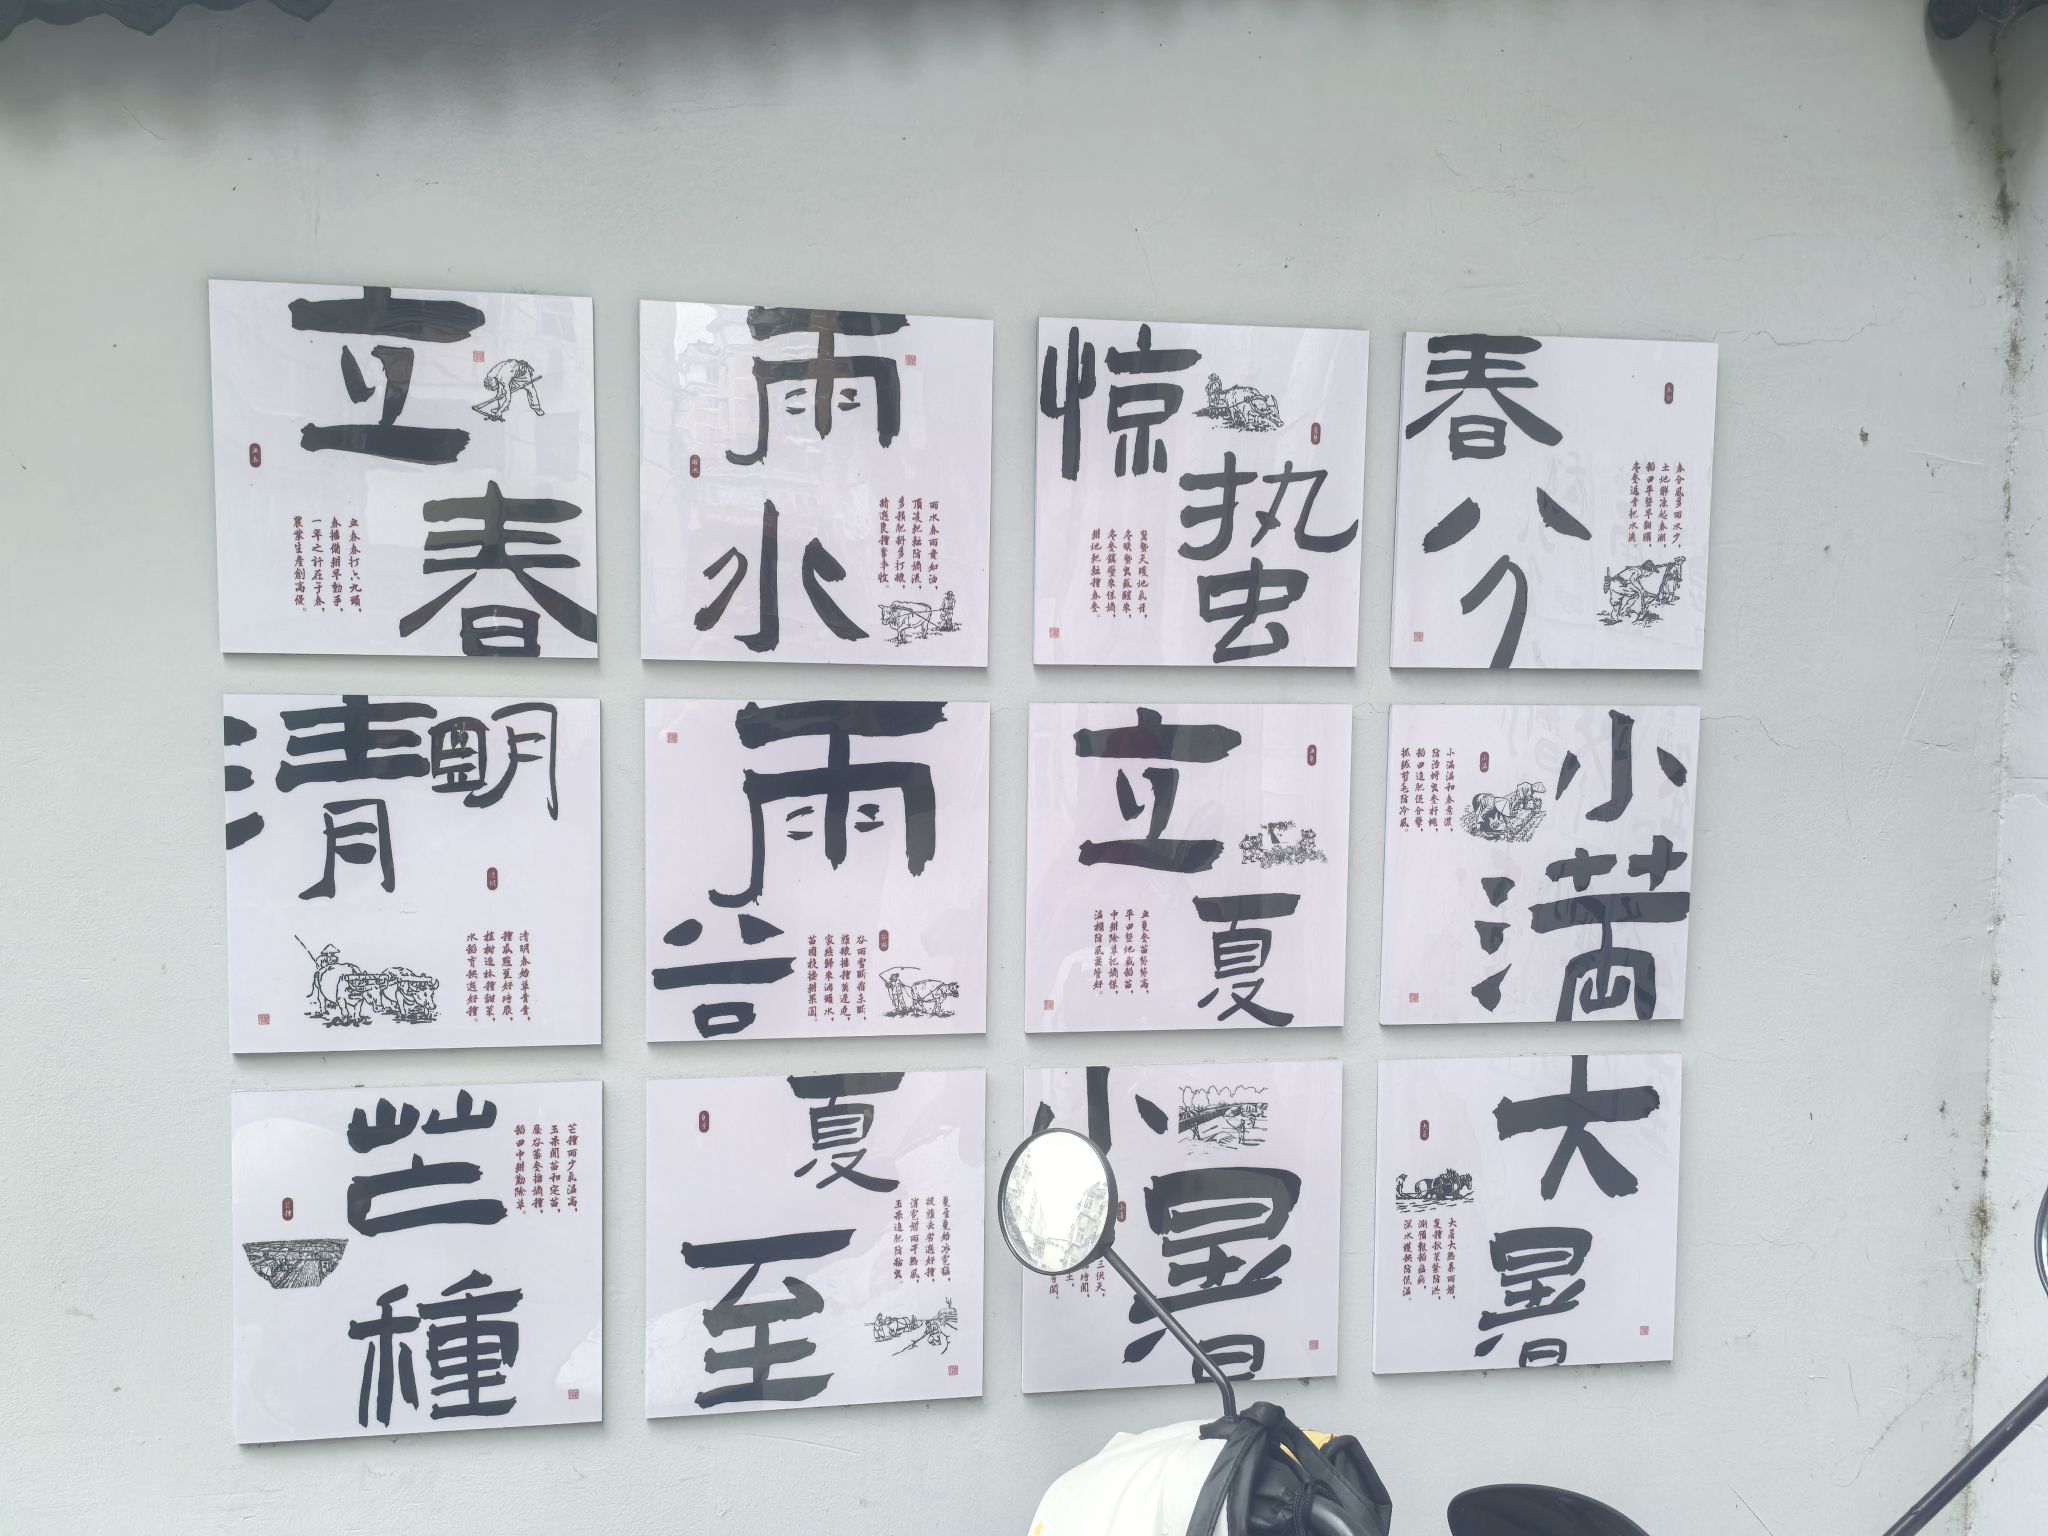 立春
立春春打六九頭，
春播備耕早動手，
一年之計在于春，
農業生産創高優。
雨水
雨水
雨水春雨貴如油，
頂凌耙耘防墒流，
多積肥料多打糧，
精選良種奪丰收。
惊蛰
驚蟄天暖地氣开，
冬眠蟄虫蘇醒來，
冬麥鎮壓來保墒，
耕地耙耘種春麥。
春分
春分風多雨水少，
土地解凍起春潮，
稻田平整早翻曬，
冬麥返青把水澆。
清明
清明
清明春始草青青，
種瓜點豆好時辰，
植樹造林種甜菜，
水稻育秧選好種。
谷雨
谷雨雪斷霜未斷，
雜糧播種莫遲延，
家燕歸來淌頭水，
苗圃枝接耕果園。
立夏
立夏麥苗節節高，
平田整地栽稻苗，
中耕除草把墒保，
温棚防風要管好。
小满
小滿
小滿温和春意濃，
防治蚜虫麥秆蠅，
稻田追肥促分蘖，
抓絨剪毛防冷風。
芒種
芒種
芒種雨少氣温高，
玉米間苗和定苗，
糜谷蕎麥搶墒種，
稻田中耕勤除草。
夏至
夏至夏始冰雹猛，
拔雜去劣選好種，
消雹增雨干熱風，
玉米追肥防粘虫。
小暑
三伏天，
大暑
大暑
大暑大熱暴雨增，
復種秋菜緊防洪，
測預報稻瘟病，
深水護秧防低温。